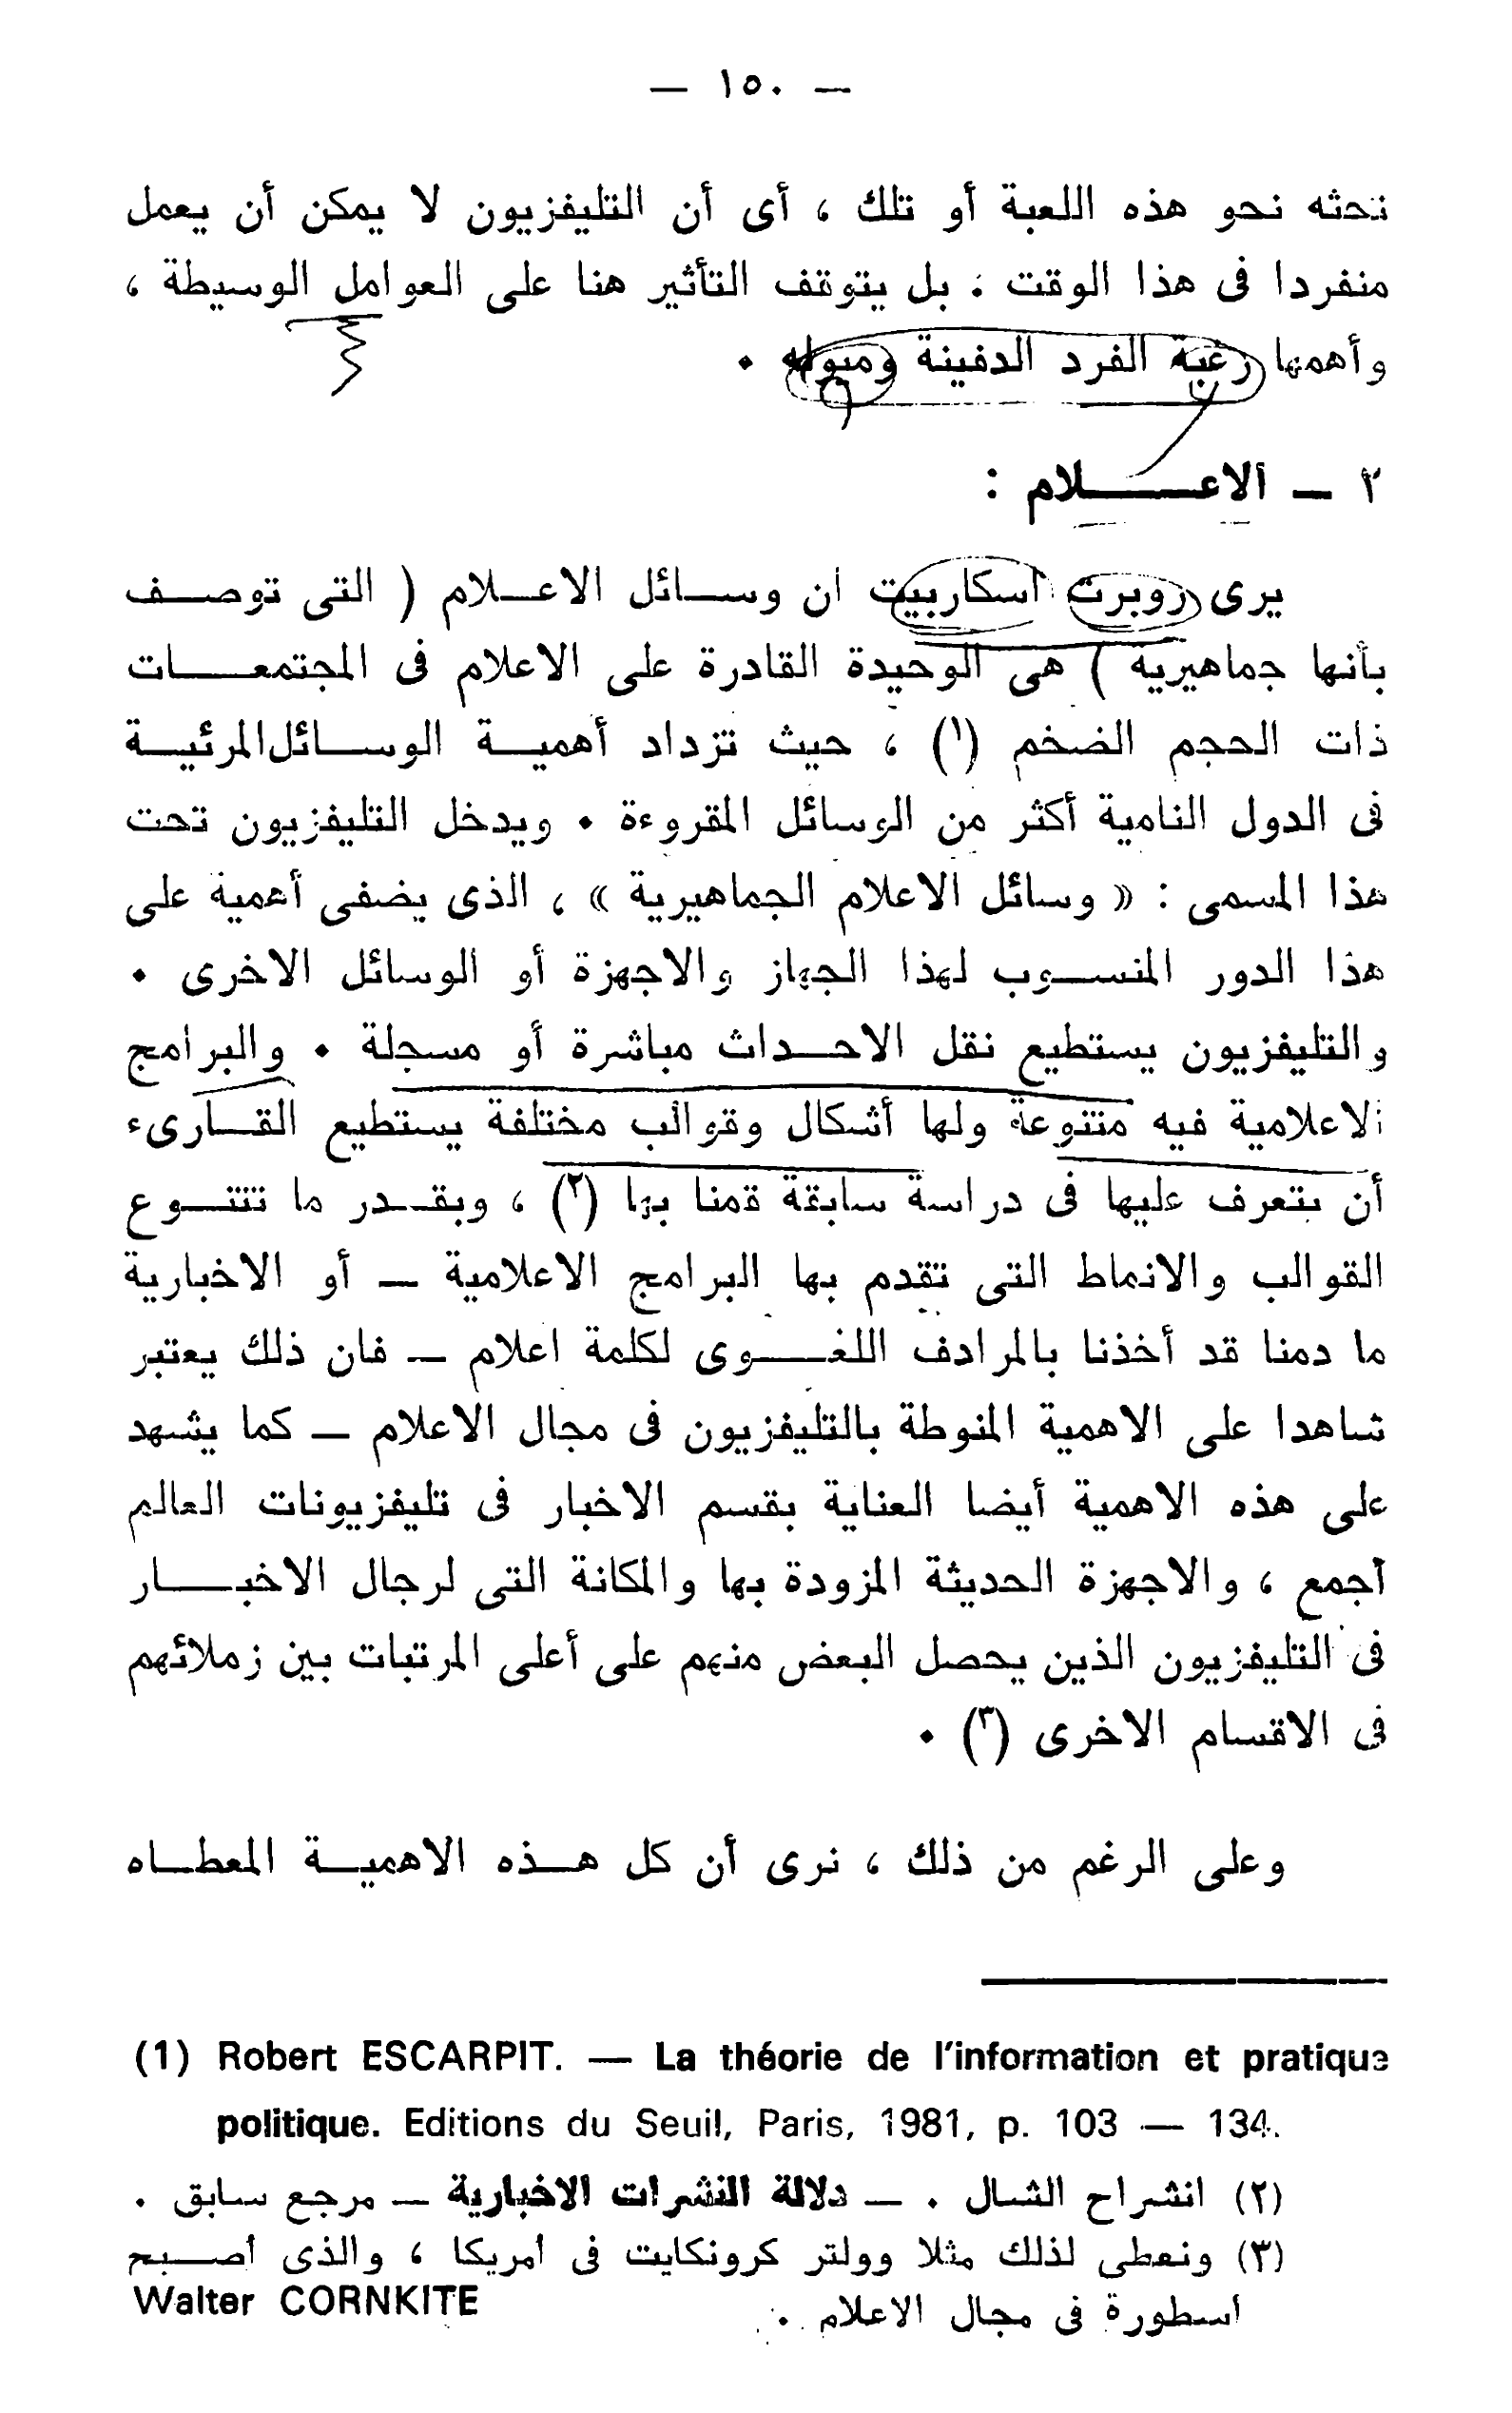 — ١٥٠ —
تحثه نحو هذه اللعبة أو تلك ، أى أن التليفزيون لا يمكن أن يعمل
منفردا فى هذا الوقت . بل يتوقف التأثير هنا على العوامل الوسيطة ،
وأهمها رغبة الفرد الدفينة وميوله .
٢ — الاعـــلام :
يرى روبرت اسكاربيت ان وسـائل الاعـلام ( التى توصـف
بأنها جماهيرية ) هى الوحيدة القادرة على الاعلام فى المجتمعـــات
ذات الحجم الضخم (١) ، حيث تزداد أهميـة الوسـائل المرئيـة
فى الدول النامية أكثر من الوسائل المقروءة . ويدخل التليفزيون تحت
هذا المسمى : « وسائل الاعلام الجماهيرية » ، الذى يضفى أهمية على
هذا الدور المنسـوب لهذا الجهاز والاجهزة أو الوسائل الاخرى .
والتليفزيون يستطيع نقل الاحـداث مباشرة أو مسجلة . والبرامج
الاعلامية فيه متنوعة ولها أشكال وقوالب مختلفة يستطيع القـارىء
أن يتعرف عليها فى دراسة سابقة قمنا بها (٢) ، وبقـدر ما تتنـوع
القوالب والانماط التى تقدم بها البرامج الاعلامية — أو الاخبارية
ما دمنا قد أخذنا بالمرادف اللغـــوى لكلمة اعلام — فان ذلك يعتبر
شاهدا على الاهمية المنوطة بالتليفزيون فى مجال الاعلام — كما يشهد
على هذه الاهمية أيضا العناية بقسم الاخبار فى تليفزيونات العالم
أجمع ، والاجهزة الحديثة المزودة بها والمكانة التى لرجال الاخبـــار
فى التليفزيون الذين يحصل البعض منهم على أعلى المرتبات بين زملائهم
فى الاقسام الاخرى (٣) .
وعلى الرغم من ذلك ، نرى أن كل هـذه الاهميـة المعطـاه
(1) Robert ESCARPIT. — La théorie de l'information et pratique
politique. Editions du Seuil, Paris, 1981, p. 103 — 134.
(٢) انشراح الشال . — دلالة النشرات الاخبارية — مرجع سابق .
(٣) ونعطى لذلك مثلا وولتر كرونكايت فى أمريكا ، والذى أصـبح
أسطورة فى مجال الاعلام . Walter CORNKITE